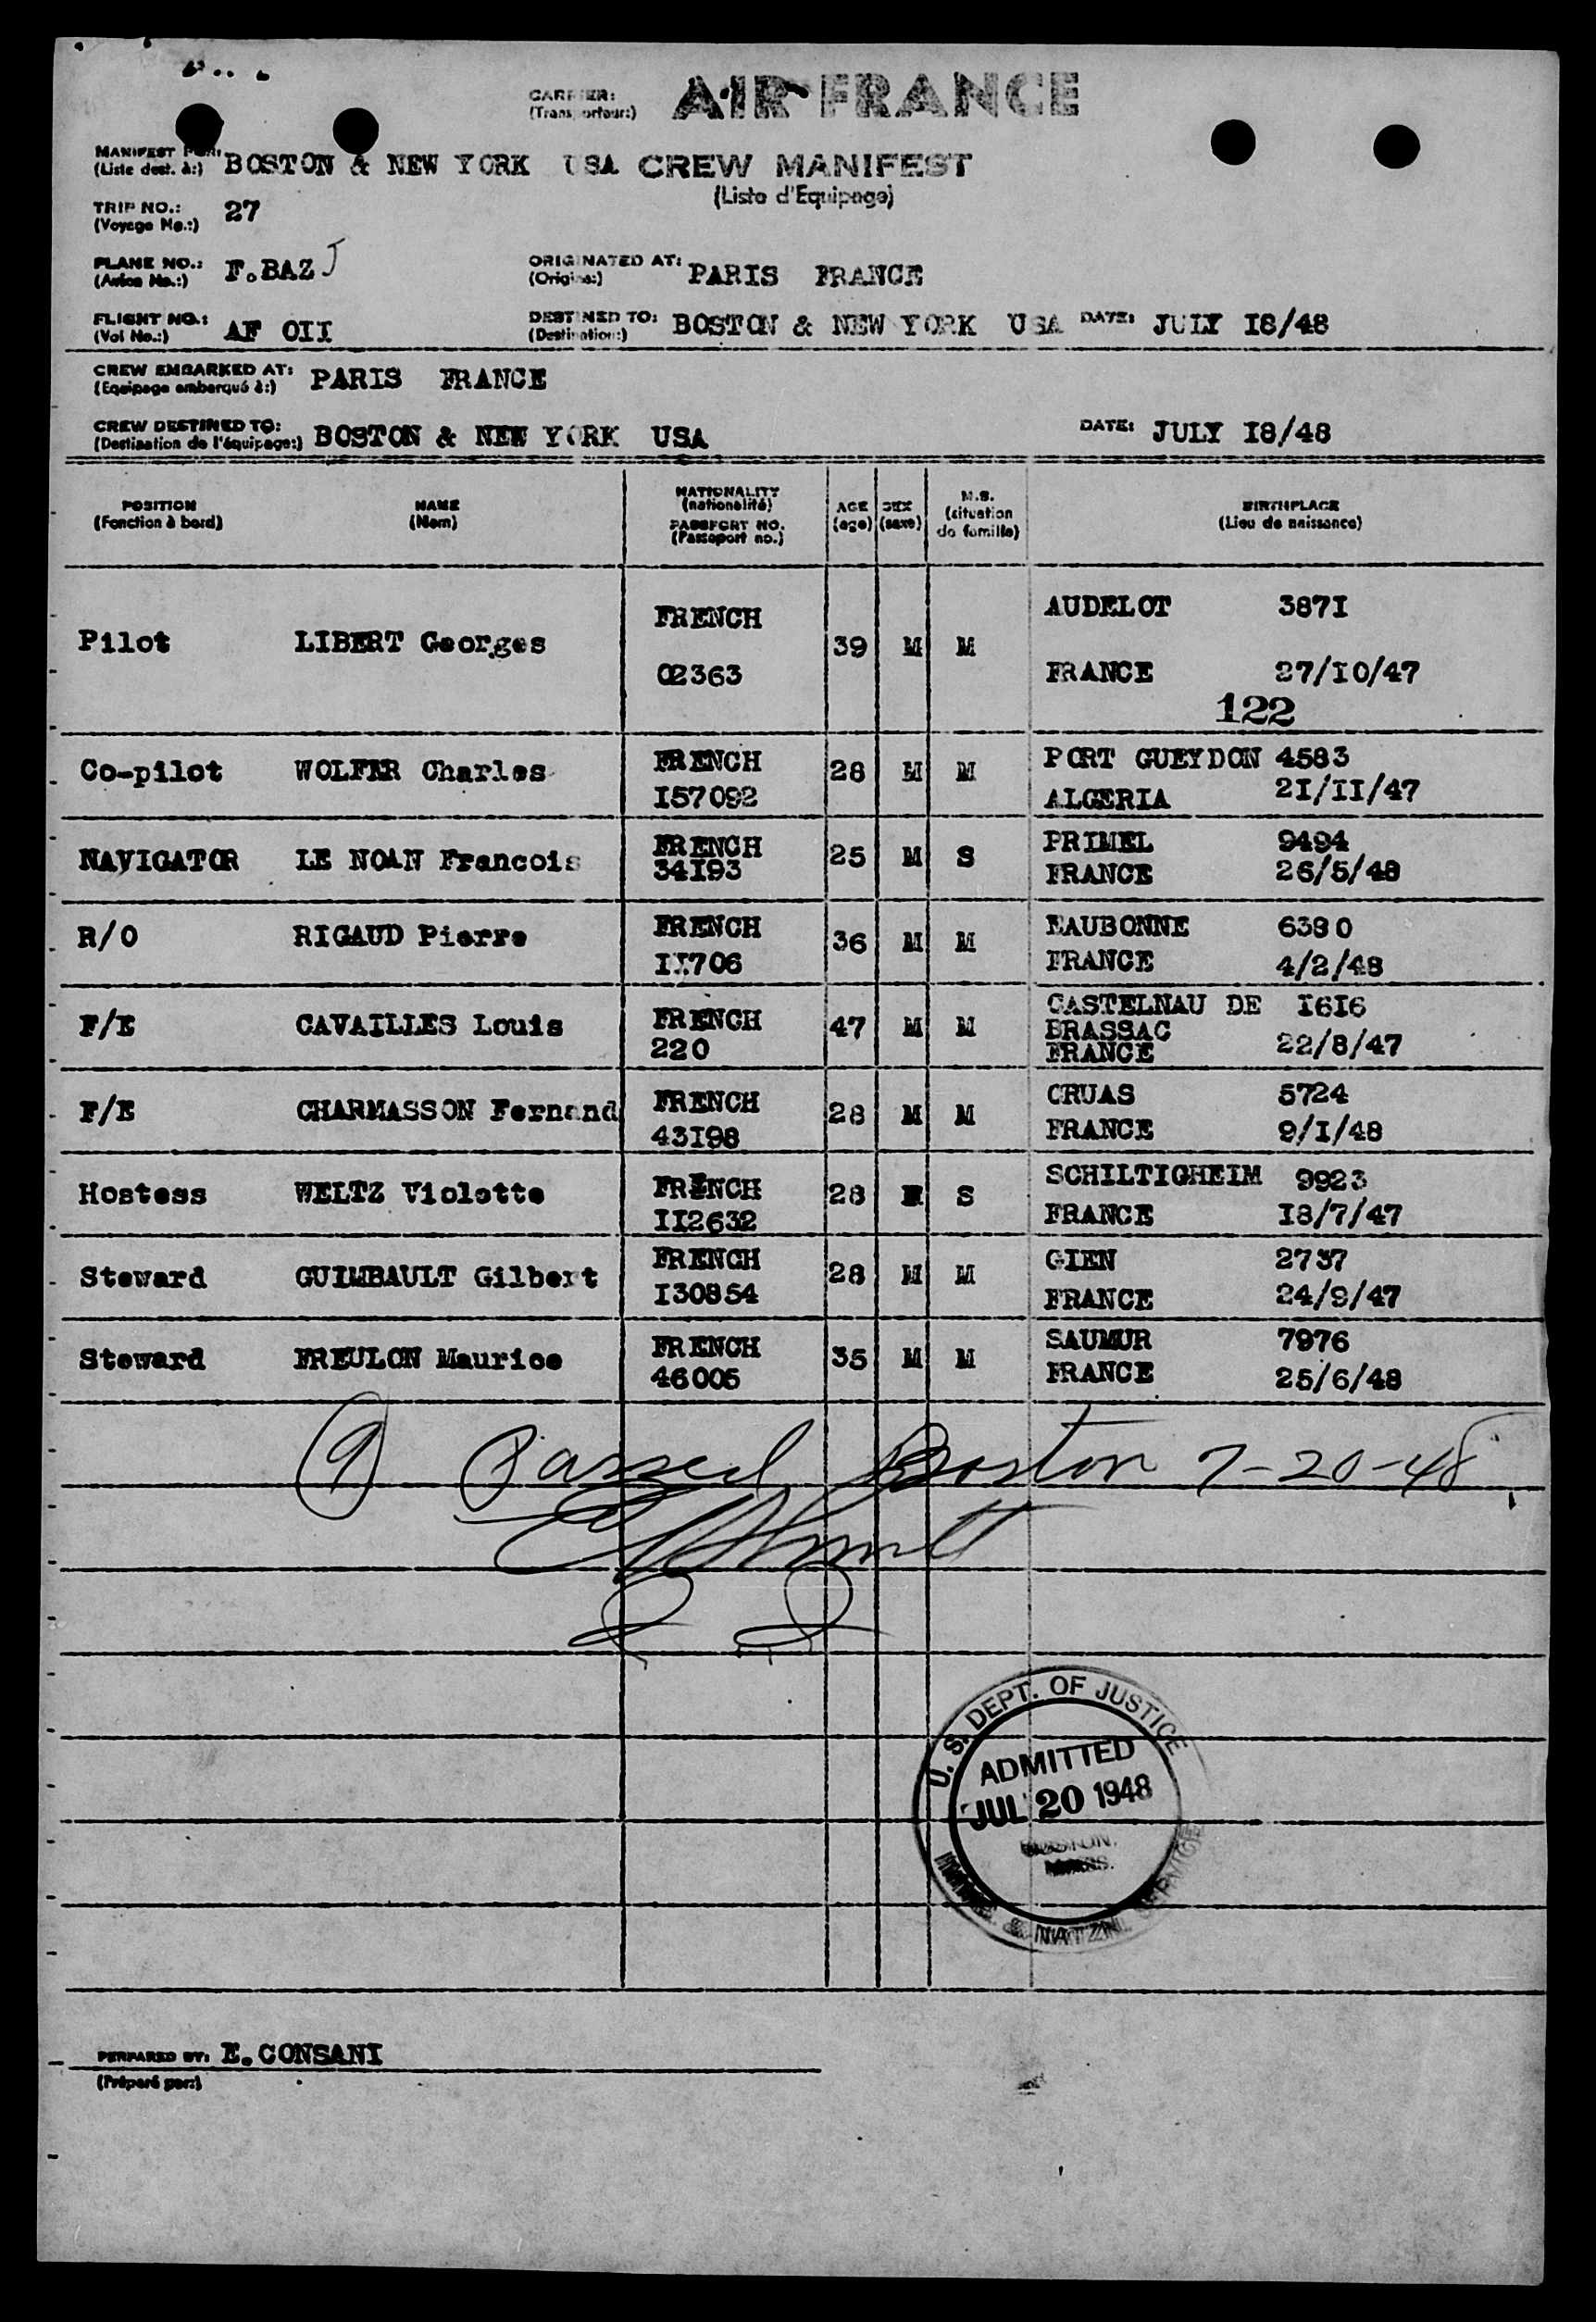 CARRIER: AIR FRANCE
(Transporteur:)
MANIFEST FOR: BOSTON & NEW YORK USA CREW MANIFEST
(Liste dest. à:) (Liste d'Equipage)
TRIP NO.: 27
(Voyage No.:)
PLANE NO.: F.BAZJ ORIGINATED AT: PARIS FRANCE
(Avion No.:) (Origine:)
FLIGHT NO.: AF OII DESTINED TO: BOSTON & NEW YORK USA DATE: JULY I8/48
(Vol No.:) (Destination:)
CREW EMBARKED AT: PARIS FRANCE
(Equipage embarqué à:)
CREW DESTINED TO: BOSTON & NEW YORK USA DATE: JULY I8/48
(Destination de l'équipage:)
POSITION NAME NATIONALITY AGE SEX M.S. BIRTHPLACE
(Fonction à bord) (Nom) (nationalité) (age) (sexe) (situation de famille) (Lieu de naissance)
PASSPORT NO.
(Passeport no.)
AUDELOT 387I
FRENCH
Pilot LIBERT Georges 39 M M
02363 FRANCE 27/I0/47
122
FRENCH PORT GUEYDON 4583
Co-pilot WOLFER Charles 28 M M
I57092 ALGERIA 2I/II/47
FRENCH PRIMEL 9494
NAVIGATOR LE NOAN Francois 25 M S
34I93 FRANCE 26/5/48
FRENCH EAUBONNE 6380
R/O RIGAUD Pierre 36 M M
II706 FRANCE 4/2/48
CASTELNAU DE I6I6
F/E CAVAILLES Louis FRENCH 47 M M BRASSAC
220 FRANCE 22/8/47
FRENCH CRUAS 5724
F/E CHARMASSON Fernand 28 M M
43I98 FRANCE 9/I/48
FRENCH SCHILTIGHEIM 9923
Hostess WELTZ Violette 28 F S
II2632 FRANCE I8/7/47
FRENCH GIEN 2737
Steward GUIMBAULT Gilbert 28 M M
I30854 FRANCE 24/9/47
FRENCH SAUMUR 7976
Steward FREULON Maurice 35 M M
46005 FRANCE 25/6/48
9 Passed Boston 7-20-48
U.S. DEPT. OF JUSTICE
ADMITTED
JUL 20 1948
BOSTON,
MASS.
IMMIG. & NATZN. SERVICE
PERPARED BY: E.CONSANI
(Préparé par:)